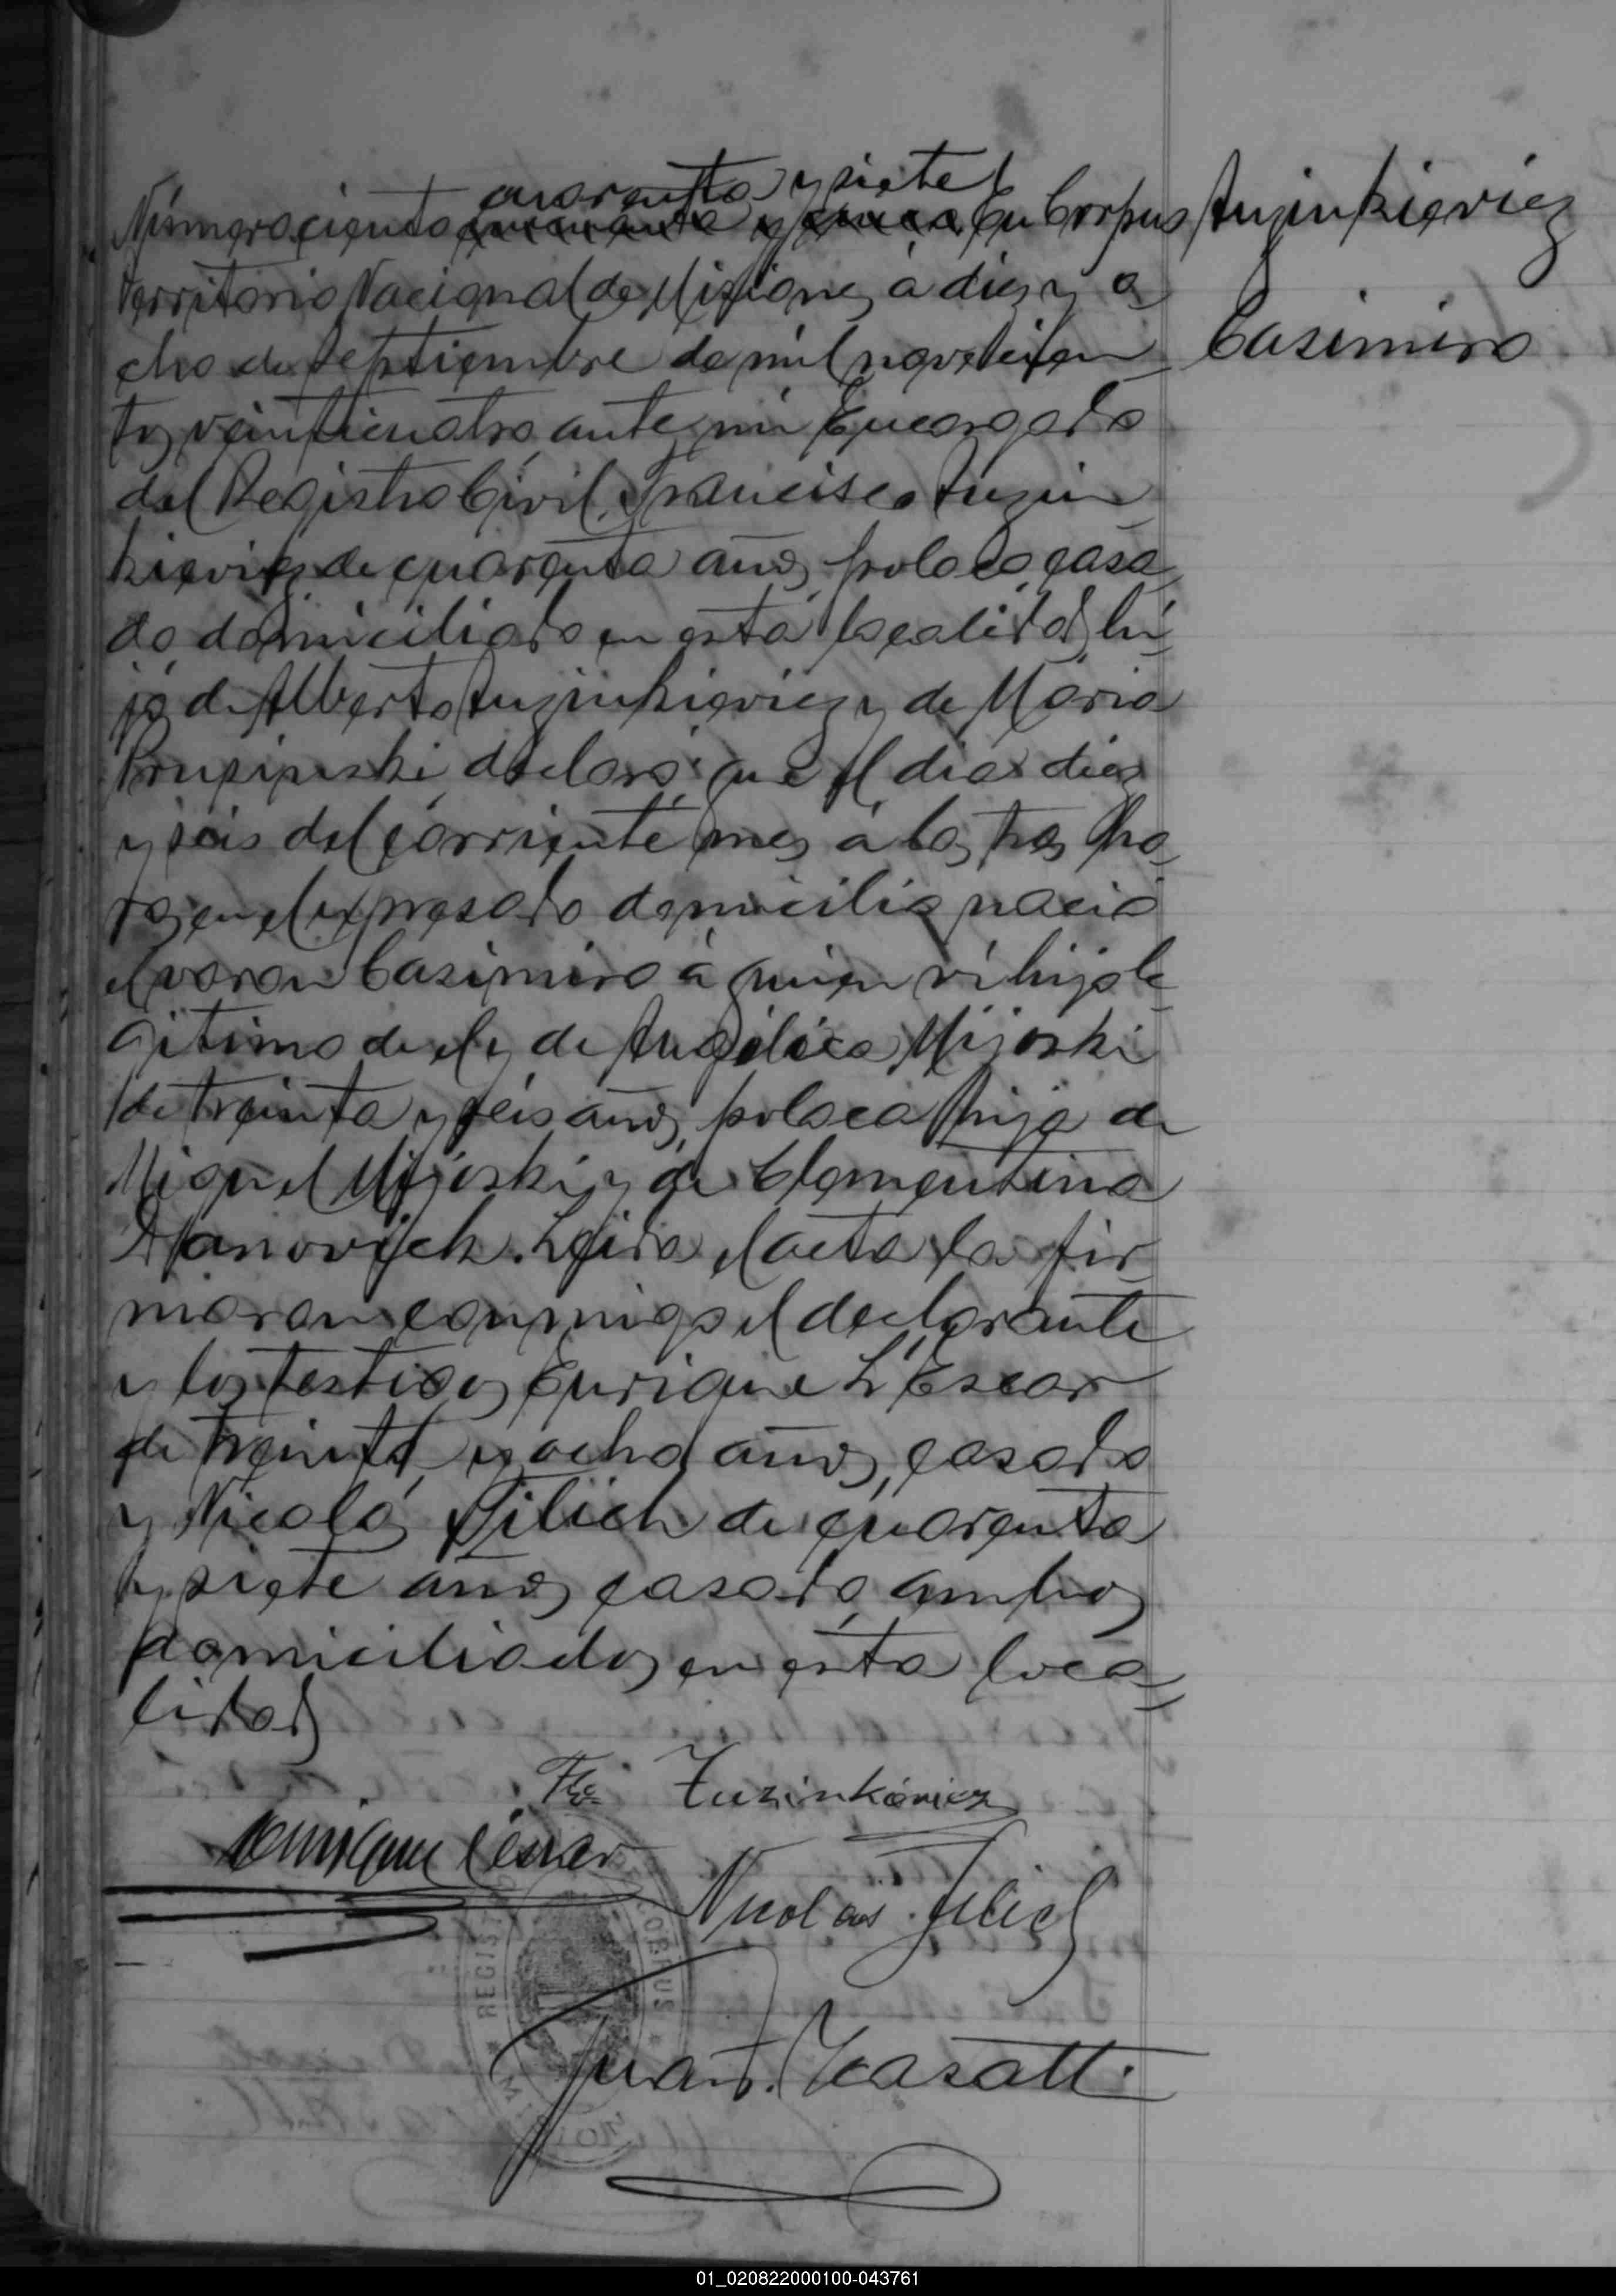 cuarenta y siete
Número ciento cuarenta y cinco En Corpus
Territorio Nacional de Misiones à diez y o
cho de Septiembre de mil novecien
tos veinticuatro, ante mi Encargado
del Registro Civil, Francisco Tuzin
kieviez de cuarenta años, polaco, casa
do domiciliado en ésta localidad, hi
jo de Alberto Tuzinkieviez y de Maria
Krupinski, declaró: que el dia diez
y seis del corriente mes á las tres ho
ras en el expresado domicilio nació
el varon Casimiro à quien ví hijo le
gitimo de el y de Angélica Mijoski
de treinta y seis años, polaca hija de
Miguel Mijoski y de Clementina
Stanovijck. Leida el acta la fir
maron conmigo el declarante
y los testigos Enrique L'Escar
de treinta y ocho años, casado
y Nicolás Jilich de cuarenta
y siete años, casado, ambos
domiciliados en ésta loca
lidad
Tuzinkieviez
Casimiro
Fco Tuzinkéwicz
Enrique Lescar
Nicolas Jilich
Juan T. Casatti
REGISTRO CORPUS
01_020822000100-043761